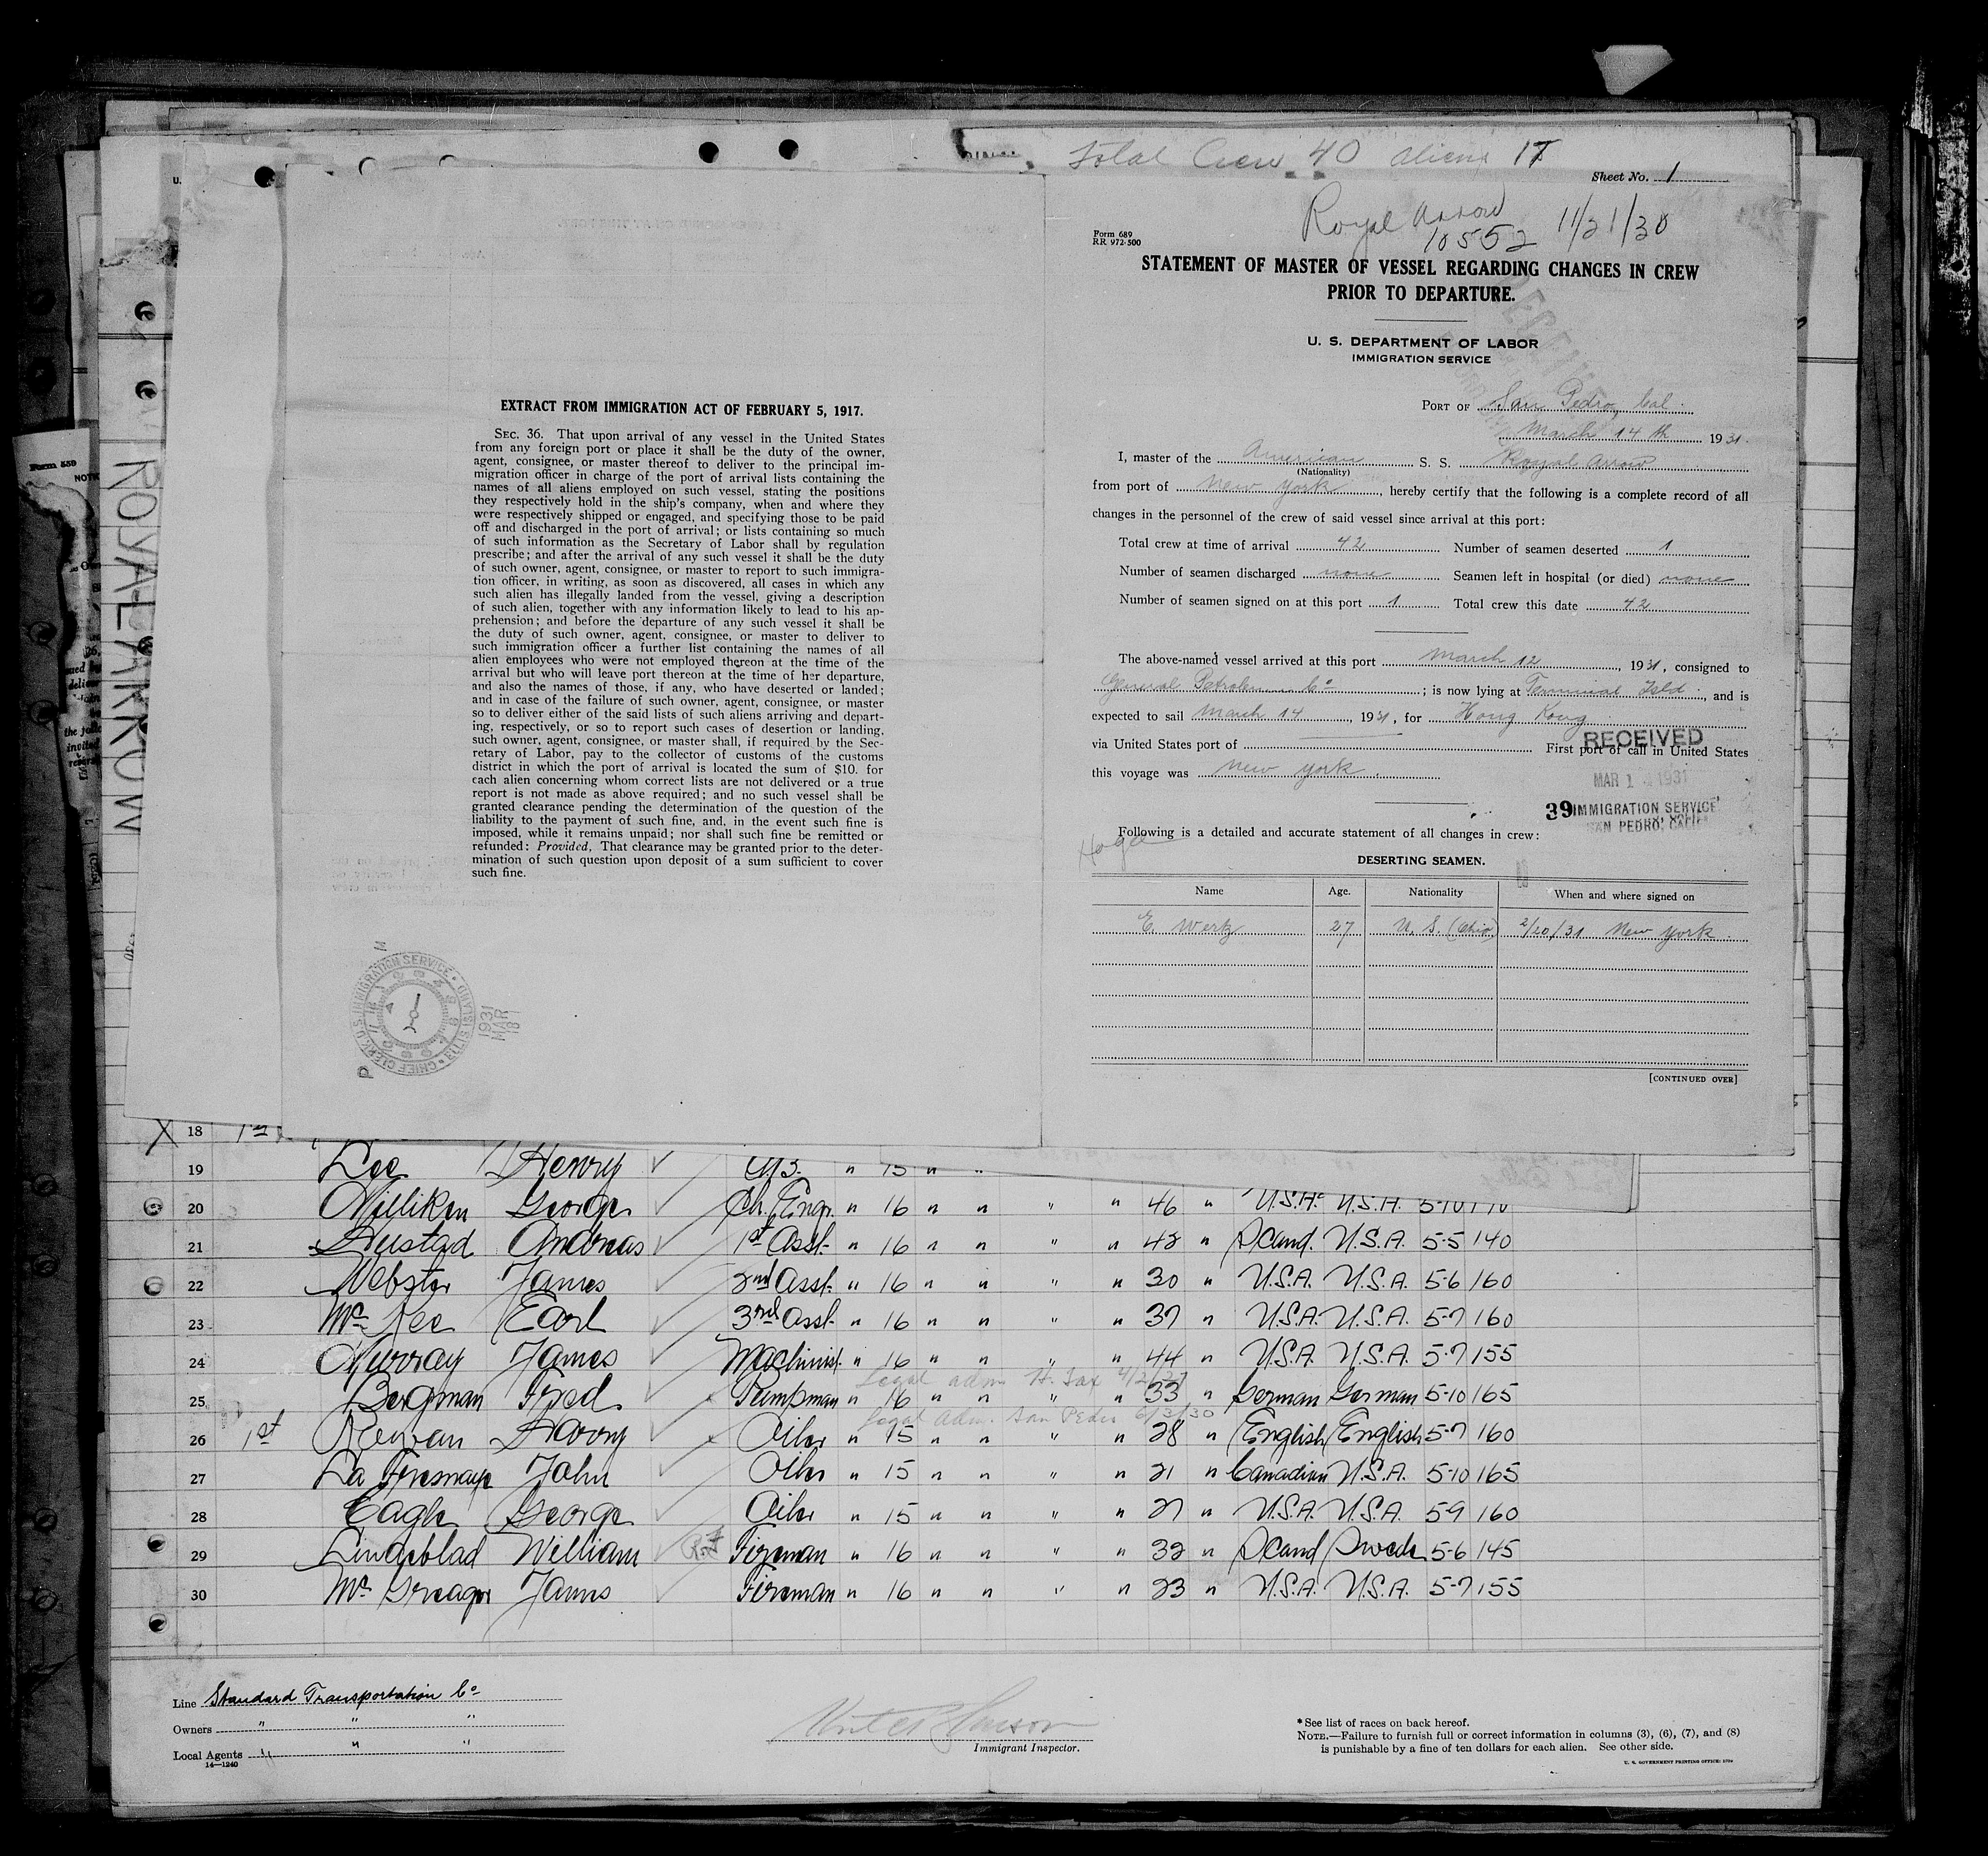 Total Crew 40 aliens 17
Sheet No. 1
Royal Arrow 11/21/30
10552
Form 689
RR 972-500
STATEMENT OF MASTER OF VESSEL REGARDING CHANGES IN CREW
PRIOR TO DEPARTURE.
U. S. DEPARTMENT OF LABOR
IMMIGRATION SERVICE
PORT OF San Pedro, Cal.
March 14th 1931.
I, master of the American S. S. Royal Arrow
(Nationality)
from port of New York, hereby certify that the following is a complete record of all
changes in the personnel of the crew of said vessel since arrival at this port:
Total crew at time of arrival 42 Number of seamen deserted 1
Number of seamen discharged none Seamen left in hospital (or died) none
Number of seamen signed on at this port 1 Total crew this date 42
The above-named vessel arrived at this port March 12, 1931, consigned to
General Petroleum Co; is now lying at Terminal Isld, and is
expected to sail March 14, 1931, for Hong Kong
via United States port of First port of call in United States
this voyage was New York.
RECEIVED
MAR 1 1931
39 IMMIGRATION SERVICE
SAN PEDRO, CALIF.
Following is a detailed and accurate statement of all changes in crew:
DESERTING SEAMEN.
Name Age. Nationality When and where signed on
E. Werk 27 U. S. (Ohio) 2/20/31 New York.
[CONTINUED OVER]
EXTRACT FROM IMMIGRATION ACT OF FEBRUARY 5, 1917.
SEC. 36. That upon arrival of any vessel in the United States
from any foreign port or place it shall be the duty of the owner,
agent, consignee, or master thereof to deliver to the principal im-
migration officer in charge of the port of arrival lists containing the
names of all aliens employed on such vessel, stating the positions
they respectively hold in the ship's company, when and where they
were respectively shipped or engaged, and specifying those to be paid
off and discharged in the port of arrival; or lists containing so much
of such information as the Secretary of Labor shall by regulation
prescribe; and after the arrival of any such vessel it shall be the duty
of such owner, agent, consignee, or master to report to such immigra-
tion officer, in writing, as soon as discovered, all cases in which any
such alien has illegally landed from the vessel, giving a description
of such alien, together with any information likely to lead to his ap-
prehension; and before the departure of any such vessel it shall be
the duty of such owner, agent, consignee, or master to deliver to
such immigration officer a further list containing the names of all
alien employees who were not employed thereon at the time of the
arrival but who will leave port thereon at the time of her departure,
and also the names of those, if any, who have deserted or landed;
and in case of the failure of such owner, agent, consignee, or master
so to deliver either of the said lists of such aliens arriving and depart-
ing, respectively, or so to report such cases of desertion or landing,
such owner, agent, consignee, or master shall, if required by the Sec-
retary of Labor, pay to the collector of customs of the customs
district in which the port of arrival is located the sum of $10. for
each alien concerning whom correct lists are not delivered or a true
report is not made as above required; and no such vessel shall be
granted clearance pending the determination of the question of the
liability to the payment of such fine, and, in the event such fine is
imposed, while it remains unpaid; nor shall such fine be remitted or
refunded: Provided, That clearance may be granted prior to the deter-
mination of such question upon deposit of a sum sufficient to cover
such fine.
CHIEF CLERK U.S. IMMIGRATION SERVICE ELLIS ISLAND
1931 MAR 18
ROYAL ARROW
Form 689
18 1st
19 Lee Henry " 15 " "
20 Milliken George Ch. Engr. " 16 " " " " 46 " U.S.A. U.S.A. 5-10 170
21 Hustad Andreas 1st Asst. " 16 " " " " 42 " Scand. U.S.A. 5-5 140
22 Webster James 2nd Asst. " 16 " " " " 30 " U.S.A. U.S.A. 5-6 160
23 McKee Earl 3rd Asst. " 16 " " " " 37 " U.S.A. U.S.A. 5-7 160
24 Murray James Machinist " 16 " " " " 44 " U.S.A. U.S.A. 5-7 155
25 Bergman Fred Pumpman " 16 " " " " 33 " German German 5-10 165
legal adm. San Pedro 6/3/30
26 1st Harry Oiler " 15 " " " " 28 " English English 5-7 160
27 John Oiler " 15 " " " " 21 " Canadian U.S.A. 5-10 165
28 Eagle George Oiler " 15 " " " " 27 " U.S.A. U.S.A. 5-9 160
29 Lindeblad William Fireman " 16 " " " " 32 " Scand Swede 5-6 145
30 James Fireman " 16 " " " " 23 " U.S.A. U.S.A. 5-7 155
Line Standard Transportation Co
Owners " " "
Local Agents " " "
14—1240
Immigrant Inspector.
* See list of races on back hereof.
NOTE.—Failure to furnish full or correct information in columns (3), (6), (7), and (8)
is punishable by a fine of ten dollars for each alien. See other side.
U. S. GOVERNMENT PRINTING OFFICE: